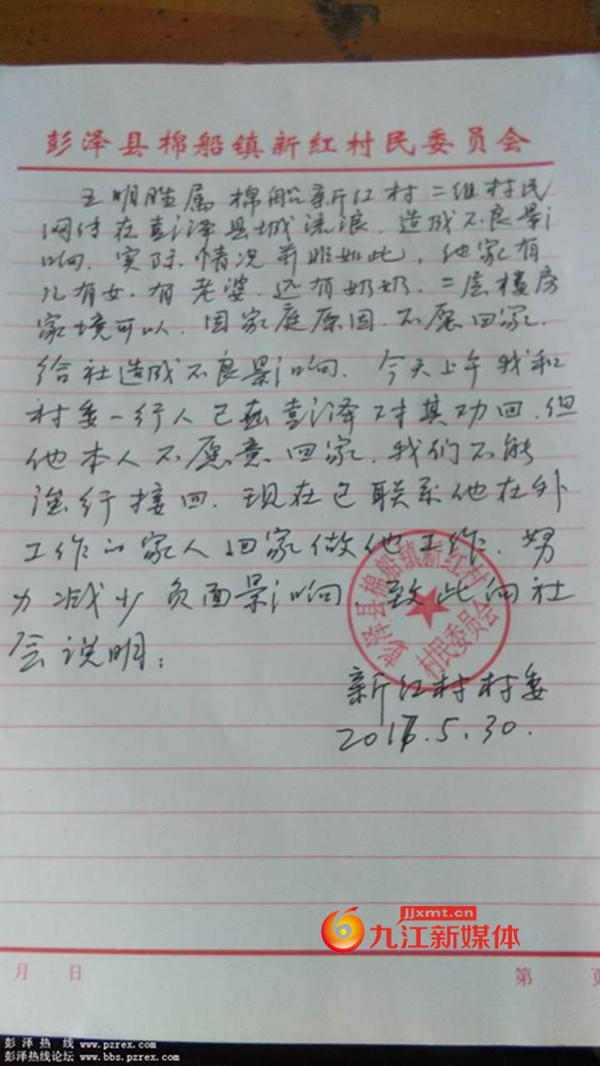 彭泽县棉船镇新红村民委员会
王明胜属棉船新江村二组村民
网传在彭泽县城流浪．造成不良影
响．实际情况并非如此，他家有
儿有女．有老婆．还有奶奶．二层楼房
家境可以．因家庭原因．不愿回家．
给社造成不良影响．今天上午我和
村委一行人已在彭泽对其劝回．但
他本人不愿意回家．我们不能
强行接回．现在已联系他在外
工作的家人回家做他工作．努
力减少负面影响 致此向社
会说明：
彭泽县棉船镇新红村
村民委员会
新江村村委
5.30.
jjxmt.cn
九江新媒体
月 日
第 页
彭泽热线 www.pzrex.com
彭泽热线论坛 www.bbs.pzrex.com